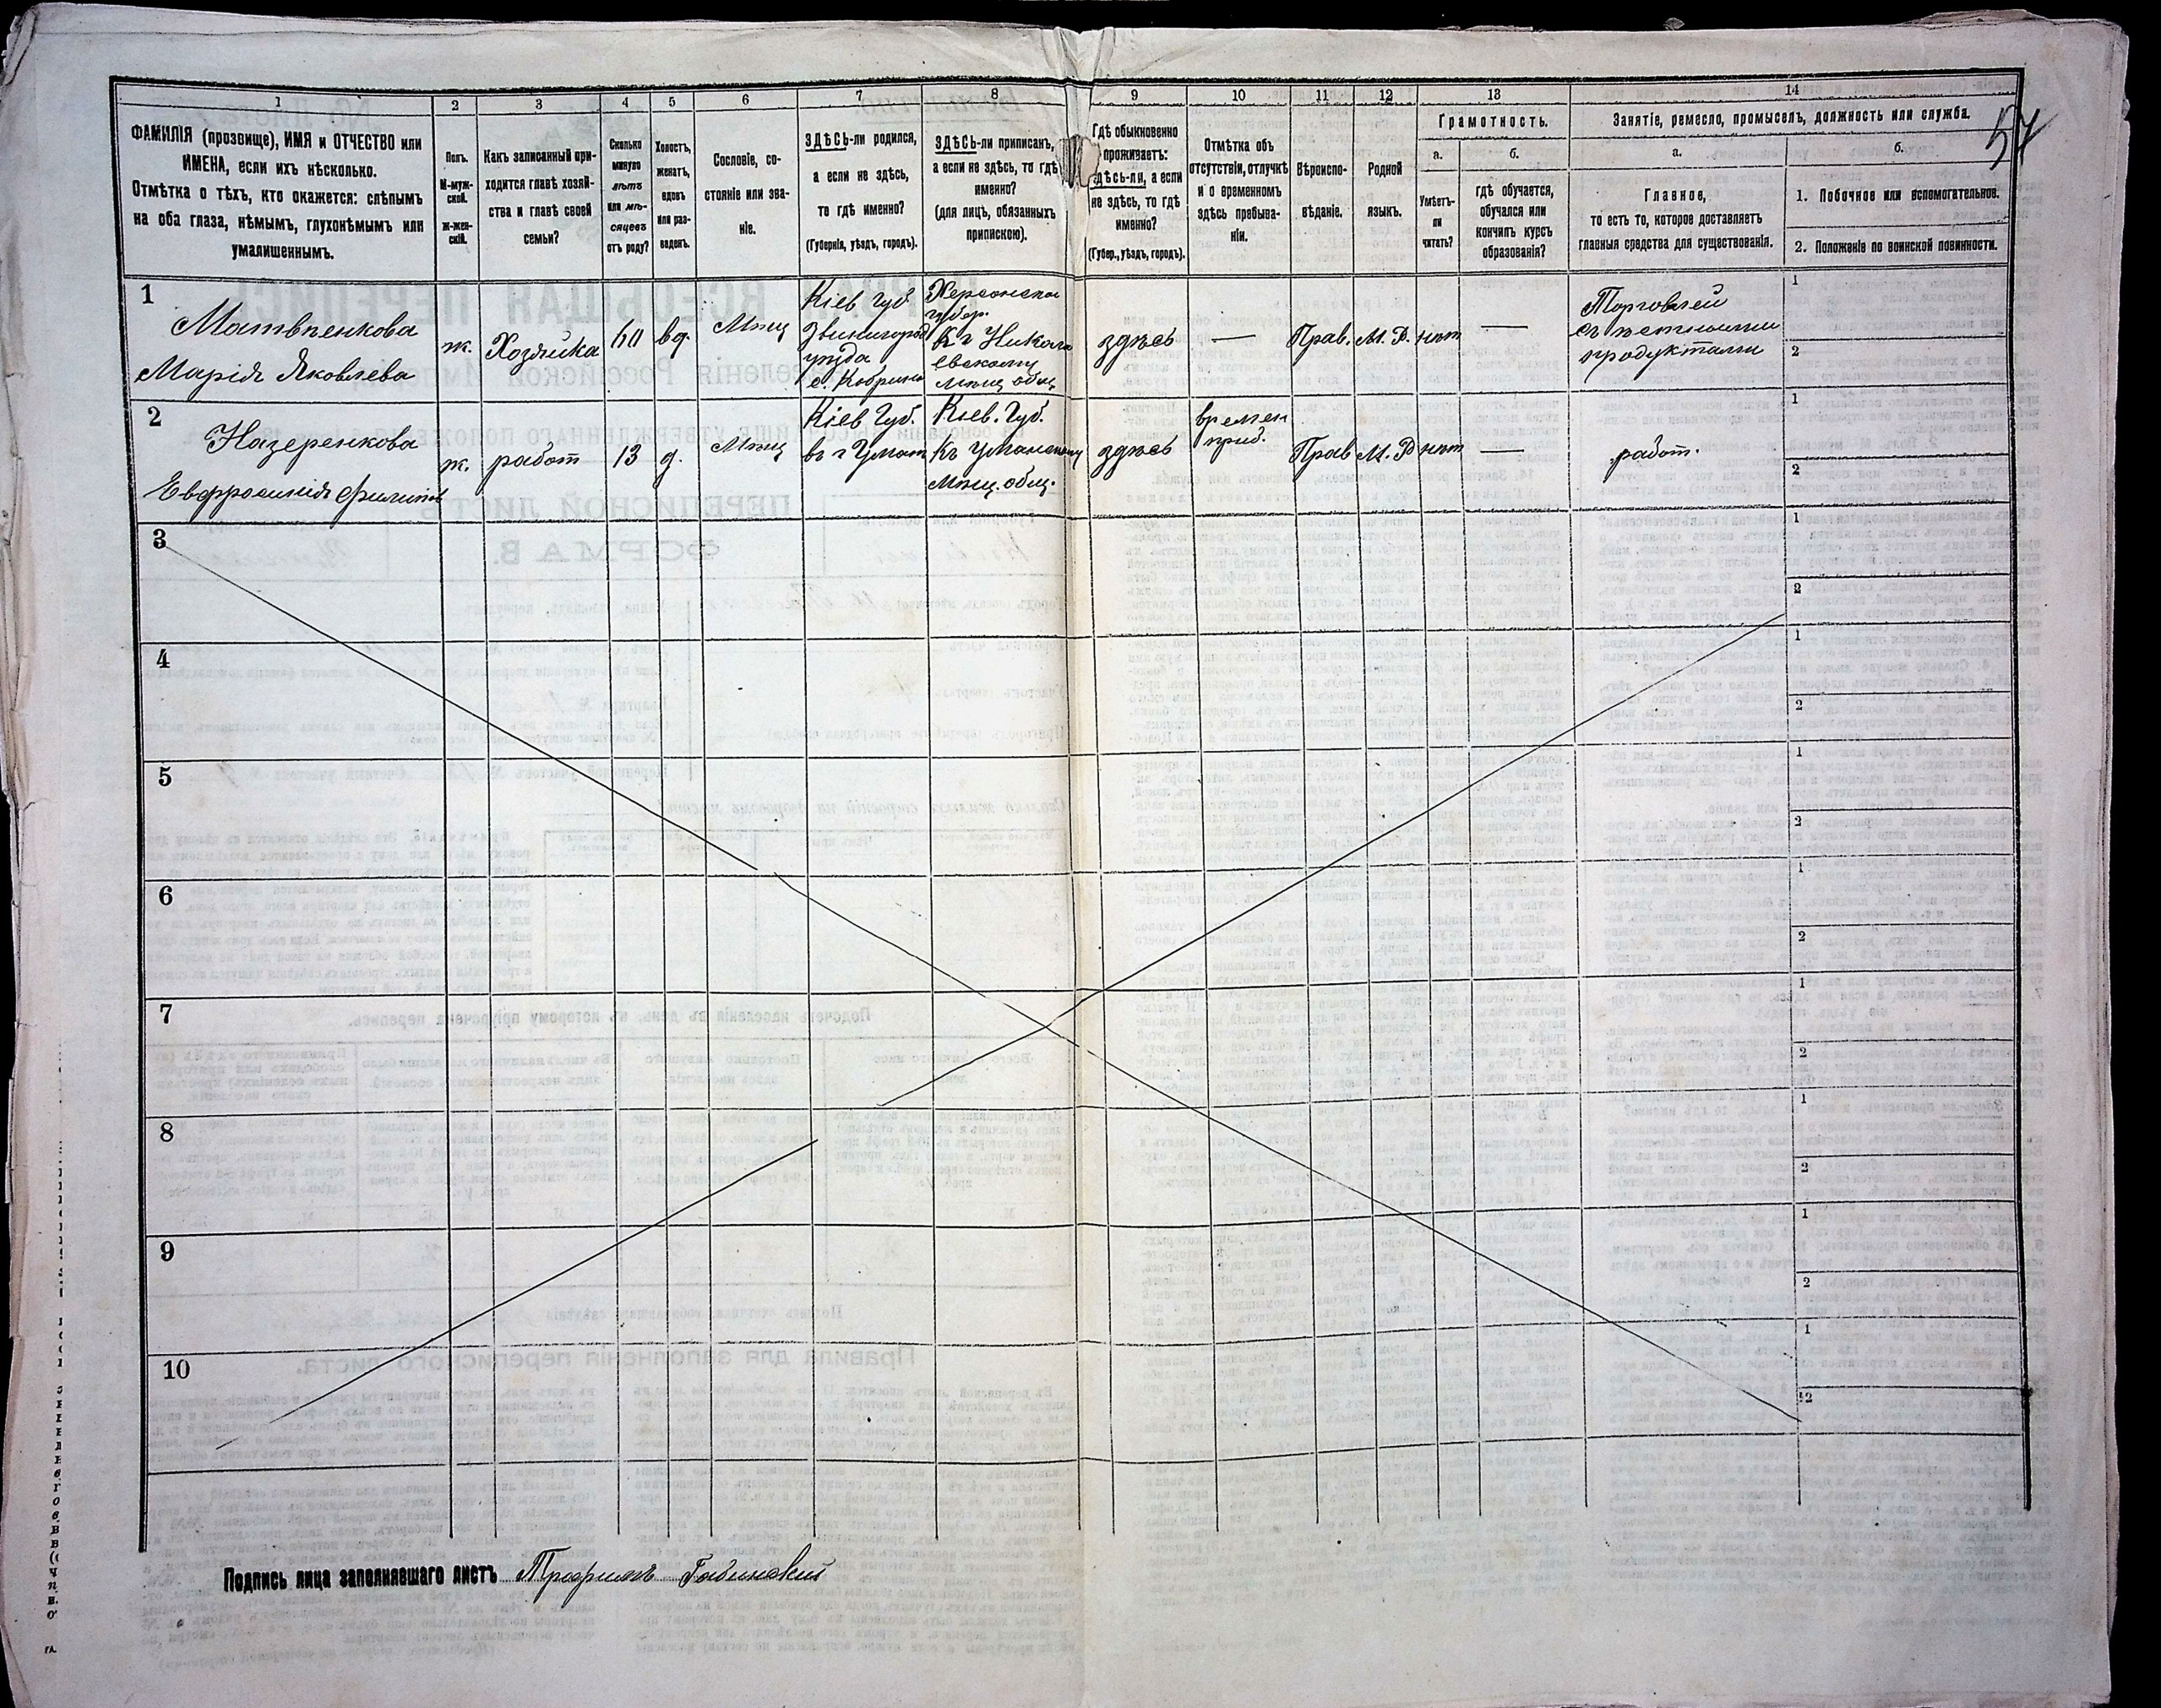 1 2 3 4 5 6 7 8 9 10 11 12 13 14
ФАМИЛІЯ (прозвище), ИМЯ и ОТЧЕСТВО или
ИМЕНА, если ихъ нѣсколько.
Отмѣтка о тѣхъ, кто окажется: слѣпымъ
на оба глаза, нѣмымъ, глухонѣмымъ или
умалишеннымъ.
Полъ.
М-муж-
ской.
Ж-жен-
скій.
Какъ записанный при-
ходится главѣ хозяй-
ства и главѣ своей
семьи?
Сколько
минуло
лѣтъ
или мѣ-
сяцевъ
отъ роду?
Холостъ,
женатъ,
вдовъ
или раз-
веденъ.
Сословіе, со-
стояніе или зва-
ніе.
ЗДѢСЬ-ли родился,
а если не здѣсь,
то гдѣ именно?
(Губернія, уѣздъ, городъ).
ЗДѢСЬ-ли приписанъ,
а если не здѣсь, то гдѣ
именно?
(для лицъ, обязанныхъ
припискою).
Гдѣ обыкновенно
проживаетъ:
здѣсь-ли, а если
не здѣсь, то гдѣ
именно?
(Губер., уѣздъ, городъ).
Отмѣтка объ
отсутствіи, отлучкѣ
и о временномъ
здѣсь пребыва-
ніи.
Вѣроиспо-
вѣданіе.
Родной
языкъ.
Грамотность.
а.
Умѣетъ-
ли
читать?
б.
гдѣ обучается,
обучался или
кончилъ курсъ
образованія?
Занятіе, ремесло, промыселъ, должность или служба.
57
а.
Главное,
то есть то, которое доставляетъ
главныя средства для существованія.
б.
1. Побочное или вспомогательное.
2. Положеніе по воинской повинности.
1
Матвѣенкова
Марія Яковлева
ж.
Хозяйка
60
вд.
Мѣщ
Кіев губ.
Звенигород
уѣзда
с. Кобрино
Херсонской
губер.
К г Никола
евскому
мѣщ общ.
здѣсь
—
Прав.
М. Р.
нѣт
—
Торговлей
съ
продуктами
1
2
2
Назеренкова
Евфросинія Филипов
ж.
работ
13
д.
Мѣщ
Кіев Губ.
въ г Уман
Кіев. Губ.
Къ Уманскому
Мѣщ. общ.
здѣсь
времен
приб.
Прав
М. Р
нѣт
—
работ.
1
2
3
1
2
4
1
2
5
1
2
6
1
2
7
1
2
8
1
2
9
1
2
10
1
2
Подпись лица заполнявшаго листъ